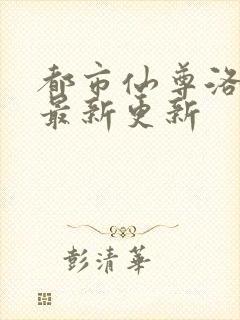 都市仙尊洛
最新更新
彭清華